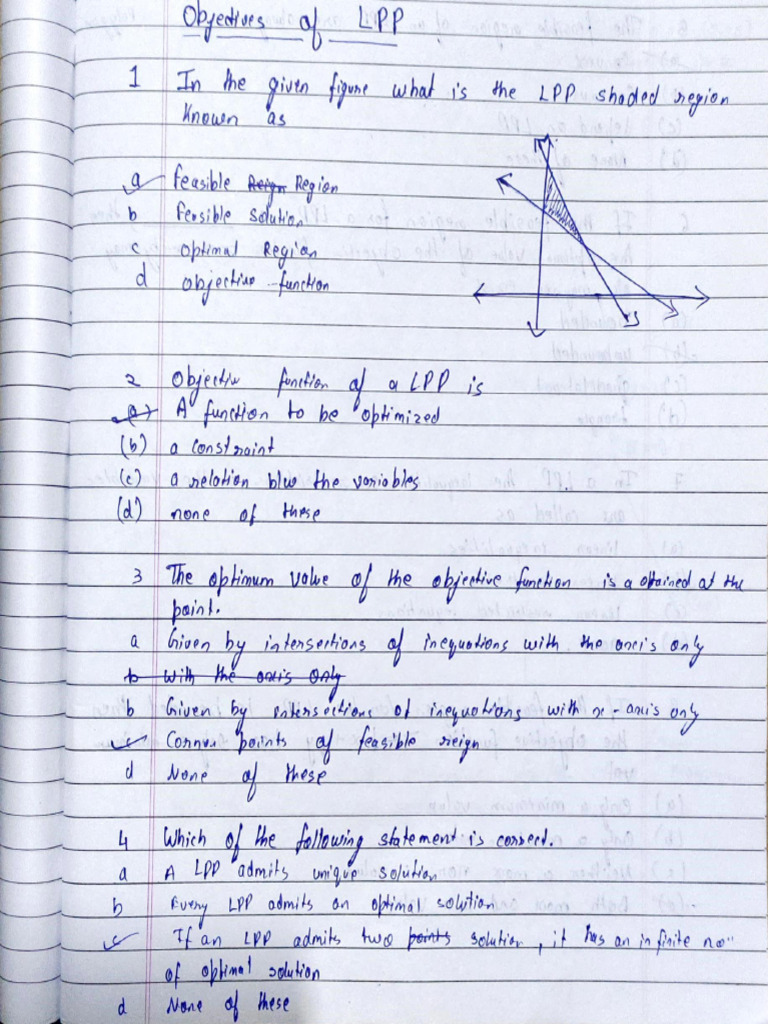 Objectives of LPP
1 In the given figure what is the LPP shaded region
known as
a feasible Region
b fersible solution
c optimal Region
d objective function
2 Objectiv function of a LPP is
(a) A function to be optimized
(b) a constraint
(c) a relation b/w the variables
(d) none of these
3 The optimum value of the objective function is a attained at the
point.
a Given by intersections of inequations with the axis only
b with the axis only
b Given by intersections of inequations with x-axis only
c Corner points of feasible reign
d None of these
4 Which of the following statement is correct.
a A LPP admits unique solution
b Every LPP admits an optimal solution
c If an LPP admits two points solution, it has an infinite no
of optimal solution
d None of these